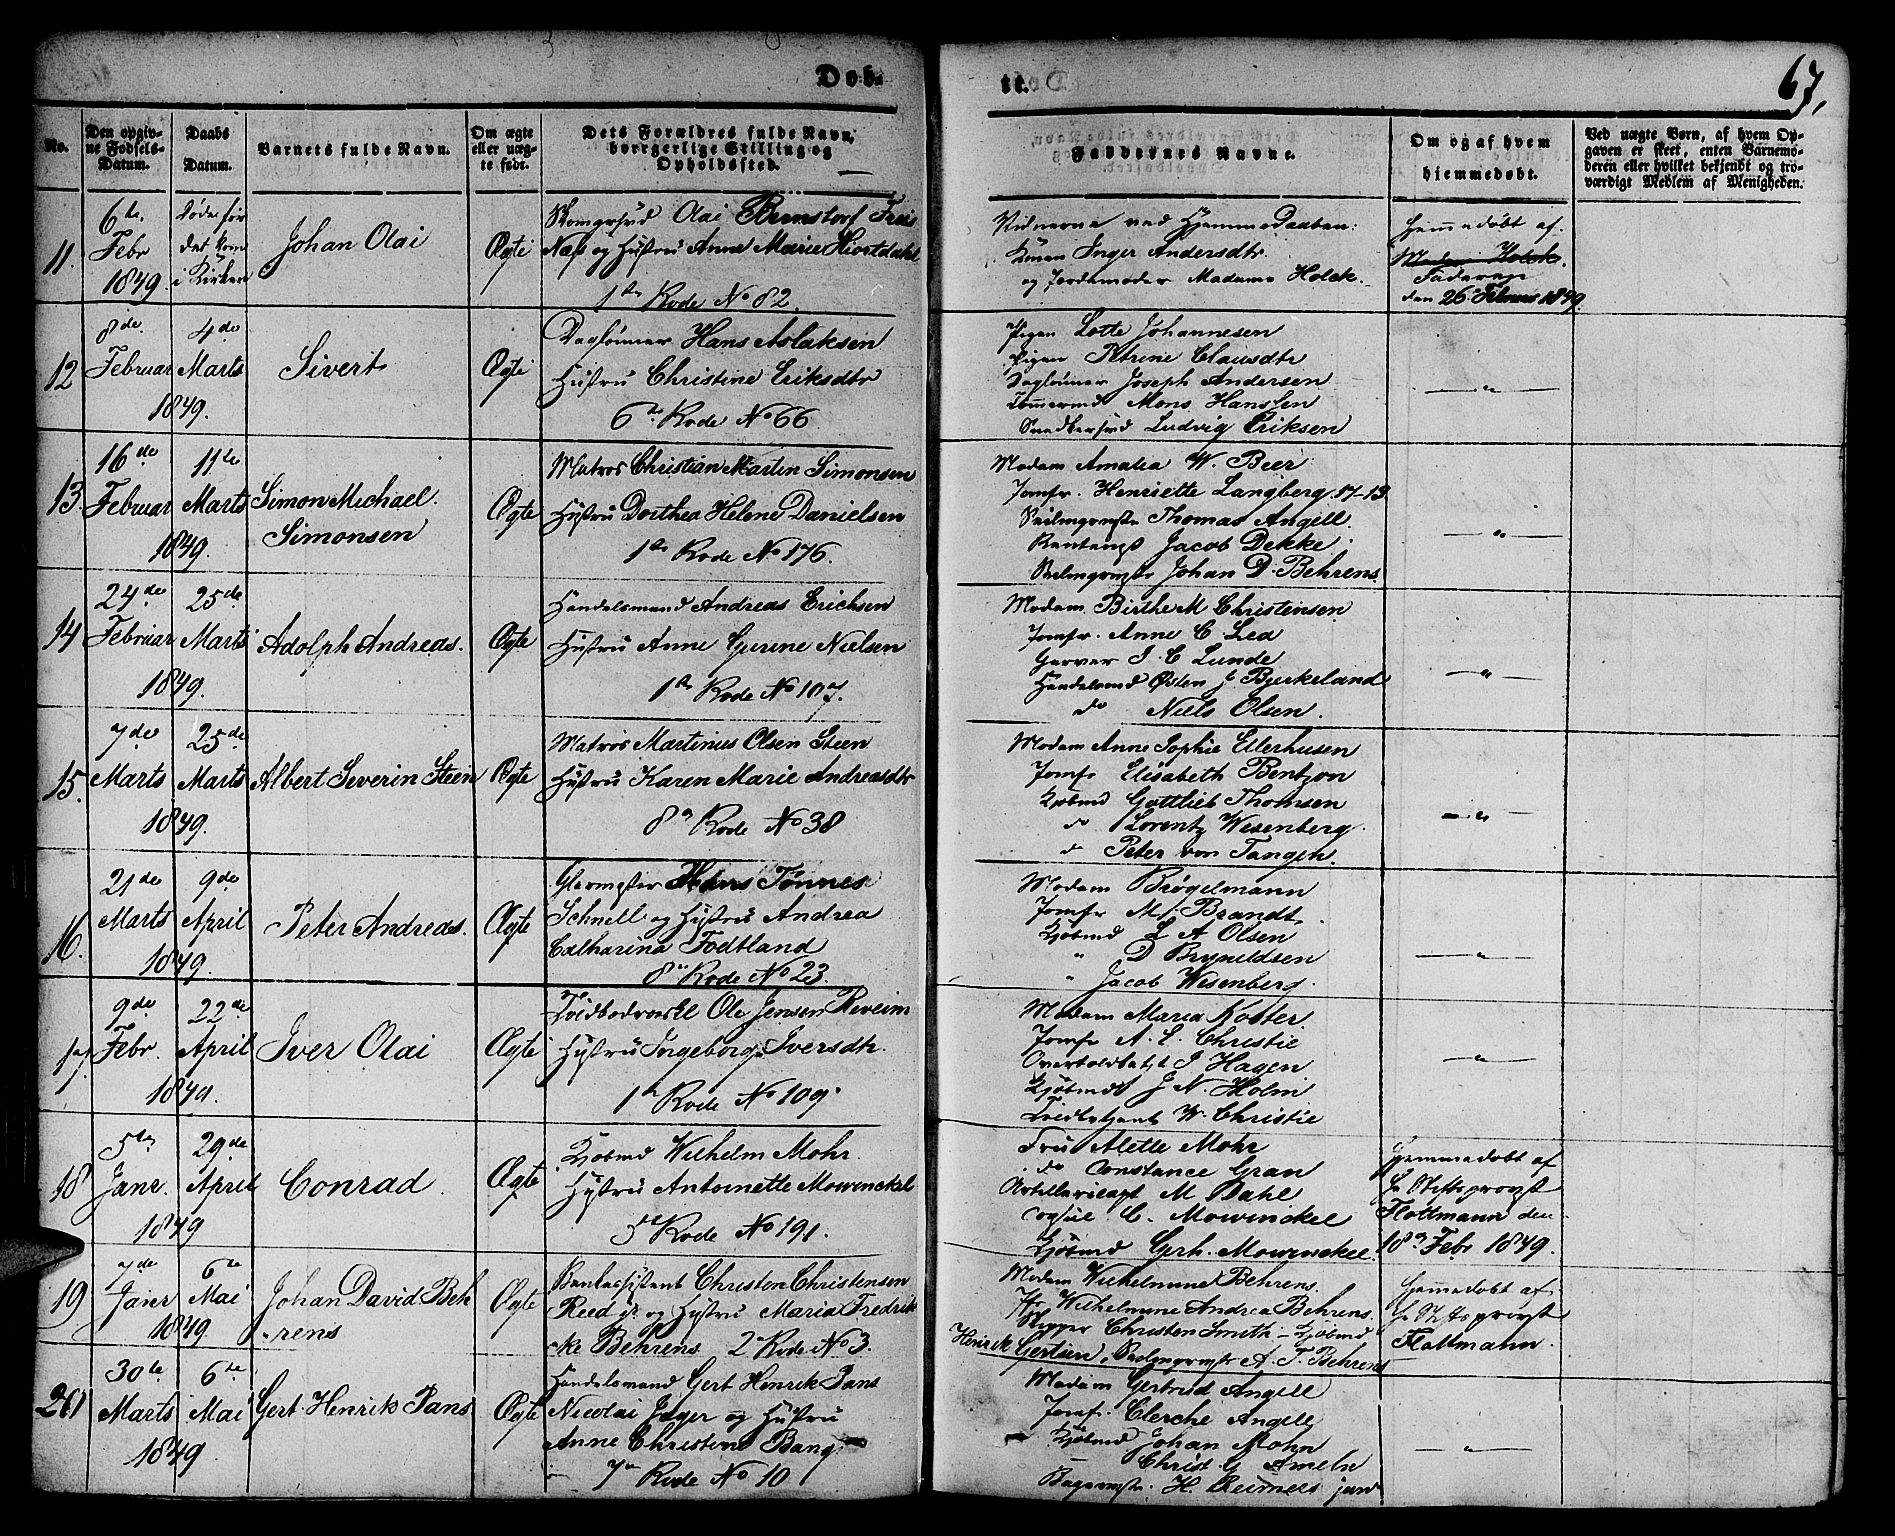 Døb-
te.
67,
No.
Den opgiv-
ne Fødsels-
Datum.
Daabs
Datum.
Barnets fulde Navn.
Om ægte
eller uæg-
te født.
Dets Forældres fulde Navn,
borgerlige Stilling og
Opholdssted.
Faddernes Navne.
Om og af hvem
hjemmedøbt.
Ved uægte Børn, af hvem Op-
gaven er skeet, enten Barnemo-
deren eller hvilket bekjendt og tro-
værdigt Medlem af Menigheden.
11.
6te
Febr
1849.
Døde før
det kom
i Kirken
Johan Olai
Ægte
Olai Bernstorf Friis
Næss og Hustru Anne Marie Hiortdahl
1ste Rode No 82.
Vidnerne ved Hjemmedaaben:
Konen Inger Andersdtr
og Jordemoder Madame Holck.
Hjemmedøbt af
Madam Holck.
Faderen
den 26 Februar 1849.
12
8de
Februar
4de
Marts
1849.
Sivert
Ægte
Daglønner Hans Aslaksen
Hustru Christine Eriksdtr
6te Rode No 66
Pigen Lotte Johannesen
Pigen Petrine Clausdtr
Daglønner Joseph Andersen
Tømmermd Mons Hansen
Snedkersvd Ludvig Eriksen
— " —
13.
16de
Februar
11te
Marts
1849.
Simon Michael
Simonsen
Ægte
Matros Christian Martin Simonsen
Hustru Dorthea Helene Danielsen
1ste Rode No 176.
Madam Amalia W. Beer
Jomfr. Henriette Langberg. 17-13
Seilmgrmstr Thomas Angell.
Jacob Dekke
Seilmgrmstr Johan D. Behrens.
— " —
14
24de
Februar
25de
Marts
1849.
Adolph Andreas.
Ægte
Handelsmand Andreas Erichsen
Hustru Anne Gurine Nielsen
1ste Rode No 107.
Madam Birthe M Christensen
Jomfr. Anne C Lea
Garver J. C Lunde
Handelsmd Østen J Bjerkeland
do Niels Olsen.
— " —
15.
7de
Marts
25de
Marts
1849.
Albert Severin Steen
Ægte
Matros Martinus Olsen Steen
Hustru Karen Marie Andreasdtr
8de Rode No 38
Madam Anne Sophie Ellerhusen
Jomfr Elisabeth Bentzon
Kjøbmd Gottlieb Thomsen
do Lorentz Wesenberg.
do Peter von Tangen.
— " —
16.
21de
Marts
9de
April
1849.
Peter Andreas.
Ægte
Glarmester Hans Tønnes
Schnell og Hustru Andrea
Catharina Todtland
8de Rode No 23.
Madam Brøgelmann
Jomfr M. Brandt
Kjøbmd L A Olsen
" D Brynildsen
" Jacob Wesenberg.
— " —
17
9de
Febr.
22de
April
1849.
Iver Olai
Ægte
Ole Jensen Reveim
Hustru Ingeborg Iversdtr.
1ste Rode No 109
Madam Maria Koster.
Jomfr A. L. Christie
J Hagen
Kjøbmd J. N. Holm
Toldbetjent W. Christie
— " —
18
5te
Janr.
29de
April
1849
Conrad
Ægte
Kjøbmd Wilhelm Mohr.
Hustru Antoinette Mowinckel
5te Rode No 191.
Fru Alette Mohr
do Constance Gran
Artillericapt M Dahl
Consul C. Mowinckel
Kjøbmd Gerh. Mowinckel
Hjemmedøbt af
Hr Stiftsprovst
Flottmann den
18de Febr 1849.
19
7de
Janr
6te
Mai
1849
Johan David Beh
rens
Ægte
Bankassistent Christen Christensen
Reed jr. og Hustru Maria Fredrik
ke Behrens 2den Rode No 3.
Madam Wilhelmine Behrens.
Jfr Wilhelmine Andrea Behrens
Skipper Christen Smith – Kjøbmd
Henrik Gertsen, Seilmgrmstr A. T. Behrens
Hjemmedøbt af
Hr Stiftsprovst
Flottmann.
20
30te
Marts
6te
Mai
1849.
Gert Henrik Jans
Ægte
Handelsmand Gert Henrik Jans
Nicolai Jæger og Hustru
Anne Christine Bang.
7de Rode No 10
Madam Gertrud Angell
Jomfr. Clerche Angell
Kjøbmd Johan Mohn
Christ. G Ameln
Bagermstr. H. Reimers jun
— " —